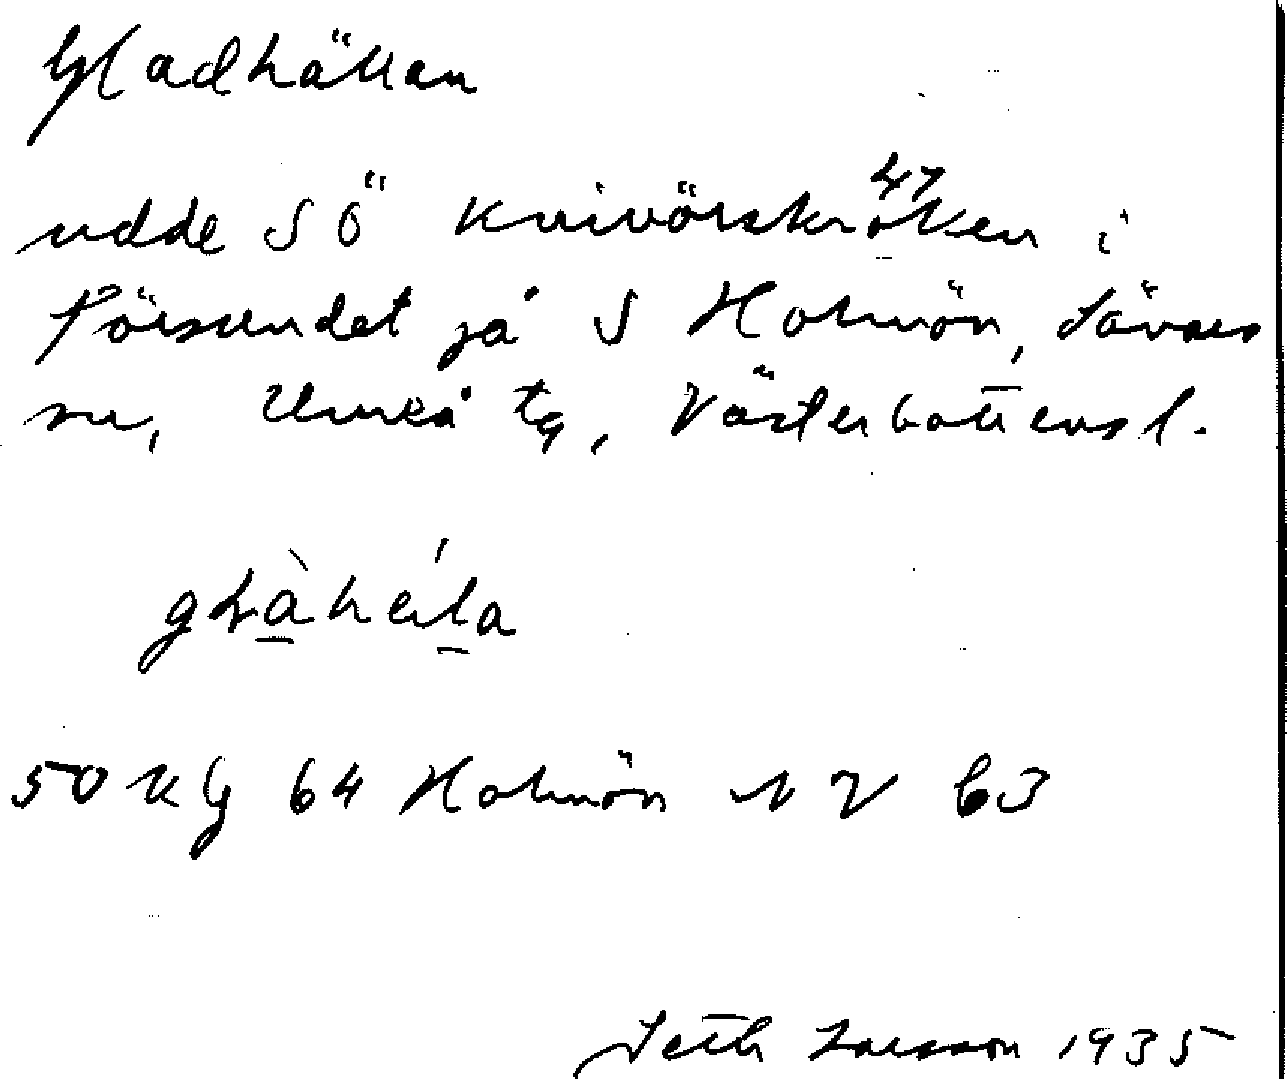 Gladhällan
udde SÖ Knivörskroken 47 i
Försundet på S Holmön, Sävars
sn, Umeå tg, Västerbottens l.
50 KG 64 Holmön NV 63
Seth Larsson 1935